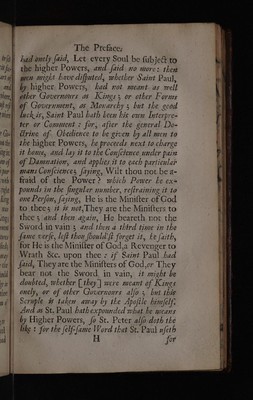 The Preface.
had onely said, Let every Soul be subject to
the higher Powers, and said no more: then
men might have disputed, whether Saint Paul,
by higher Powers, had not meant as well
other Governours as Kings; or other Forms
of Government, as Monarchy; but the good
luck is, Saint Paul hath been his own Interpre-
ter or Comment: for, after the general Do-
ctrine of Obedience to be given by all men to
the higher Powers, he proceeds next to charge
it home, and lay it to the Conscience under pain
of Damnation, and applies it to each particular
mans Conscience, saying, Wilt thou not be a-
fraid of the Power? which Power he ex-
pounds in the singular number, restraining it to
one Person, saying, He is the Minister of God
to thee; it is not, They are the Ministers to
thee; and then again, He beareth not the
Sword in vain; and then a third time in the
same verse, lest thou should'st forget it, he saith,
for He is the Minister of God, a Revenger to
Wrath &c. upon thee: if Saint Paul had
said, They are the Ministers of God, or They
bear not the Sword in vain, it might be
doubted, whether [they] were meant of Kings
onely, or of other Governours also; but this
Scruple is taken away by the Apostle himself.
And as St. Paul hath expounded what he means
by Higher Powers, so St. Peter also doth the
like: for the self-same Word that St. Paul useth
H for